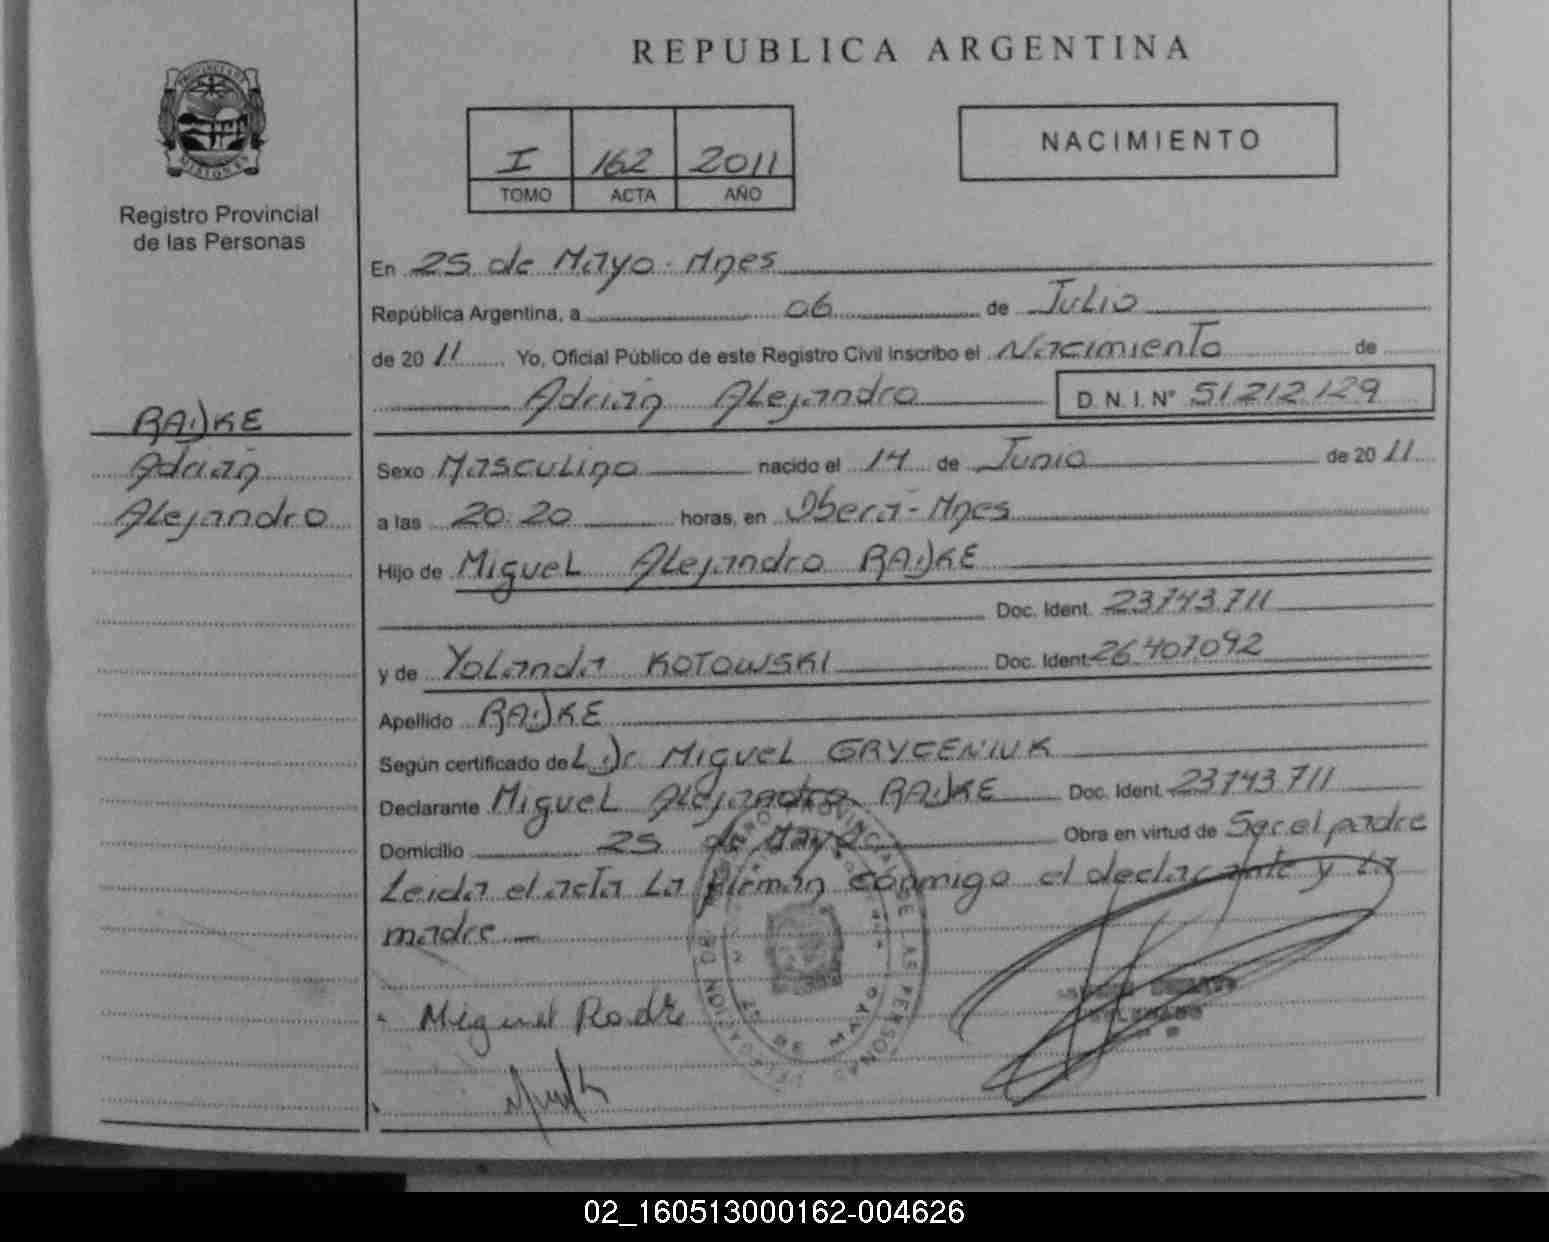 REPUBLICA ARGENTINA
NACIMIENTO
I 162 2011
TOMO ACTA AÑO
Registro Provincial
de las Personas
En 25 de Mayo - Mnes
República Argentina, a 06 de Julio
de 20 11 Yo, Oficial Público de este Registro Civil inscribo el Nacimiento de
Adrián Alejandro D. N. I. N° 51.212.129
RADKE
Adrián
Alejandro
Sexo Masculino nacido el 14 de Junio de 20 11
a las 20:20 horas, en Oberá - Mnes
Hijo de Miguel Alejandro RADKE
Doc. Ident. 23.743.711
y de Yolanda KOTOWSKI Doc. Ident. 26.407.092
Apellido RADKE
Según certificado del Dr. Miguel GRYCENIUK
Declarante Miguel Alejandro RADKE Doc. Ident. 23.743.711
Domicilio 25 de Mayo Obra en virtud de Ser el padre
Leida el acta La firman conmigo el declarante y La
madre.—
Miguel Radke
02_160513000162-004626